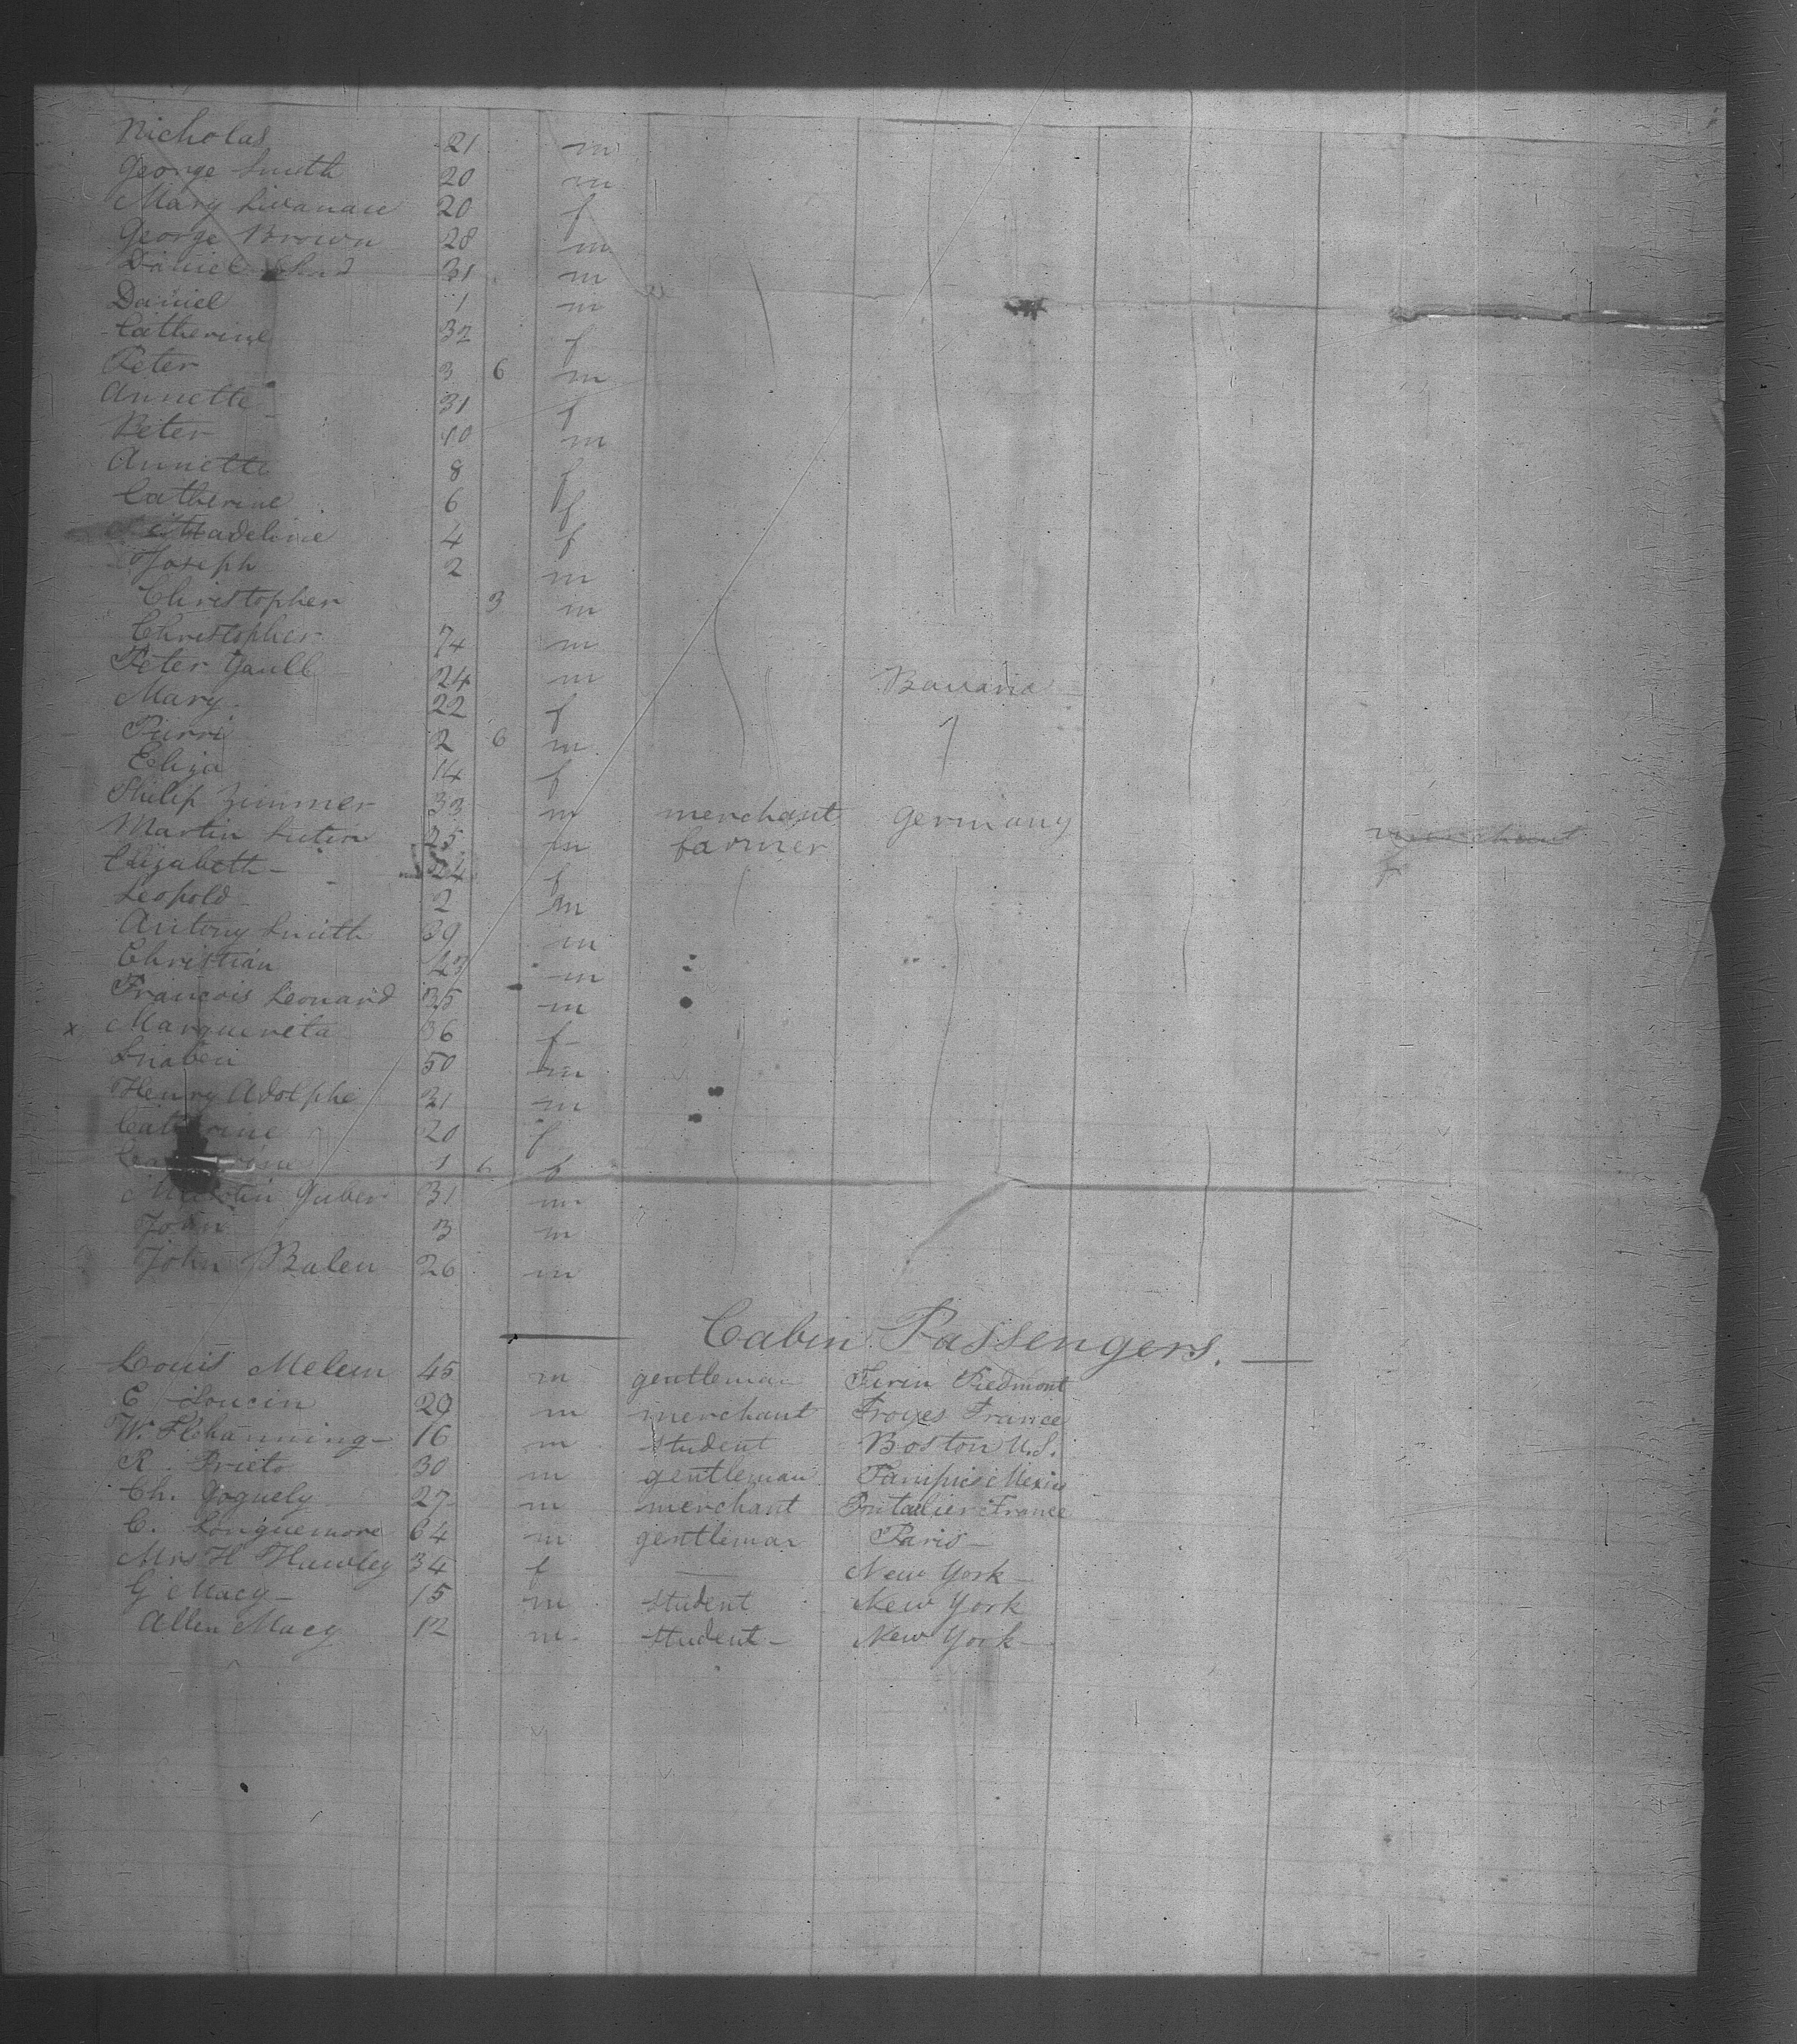 Nicholas 21 m
George Smith 20 m
Mary 20 f
George Brown 28 m
Daniel 31 m
Daniel 1 m
Catherine 32 f
Peter 3 6 m
Annette 31 f
Peter 10 m
Annette 8 f
Catherine 6 f
Madeline 4 f
Joseph 2 m
Christopher 3 m
Christopher 74 m
Peter Gaull 24 m Bavaria
Mary 22 f
Pierre 2 6 m
Eliza 14 f
Philip Zimmer 33 m merchant Germany
Martin 25 m farmer merchant
Elizabeth - 24 f f
Leopold 2 m
Antony Smith 39 m
Christian 23 m
Francois Leonard 35 m
x Margureta 36 f
50 m
Henry Adolphe 31 m
Catherine 20 f
1 6 f
Martin Guber 31 m
John 3 m
John Balen 26 m
Cabin Passengers.
Louis Melem 45 m gentleman Turin Piedmont
E Loucin 29 m merchant Troyes France
W. F Channing - 16 m student Boston U.S.
R. Prieto 30 m gentleman Tampico Mexico
Ch. Joguely 27 m merchant Pontalier France
C. Longuemore 64 m gentleman Paris -
Mrs H Hawley 34 f — New York -
G Macy - 15 m student New York
Allen Macy 12 m - student - New York -